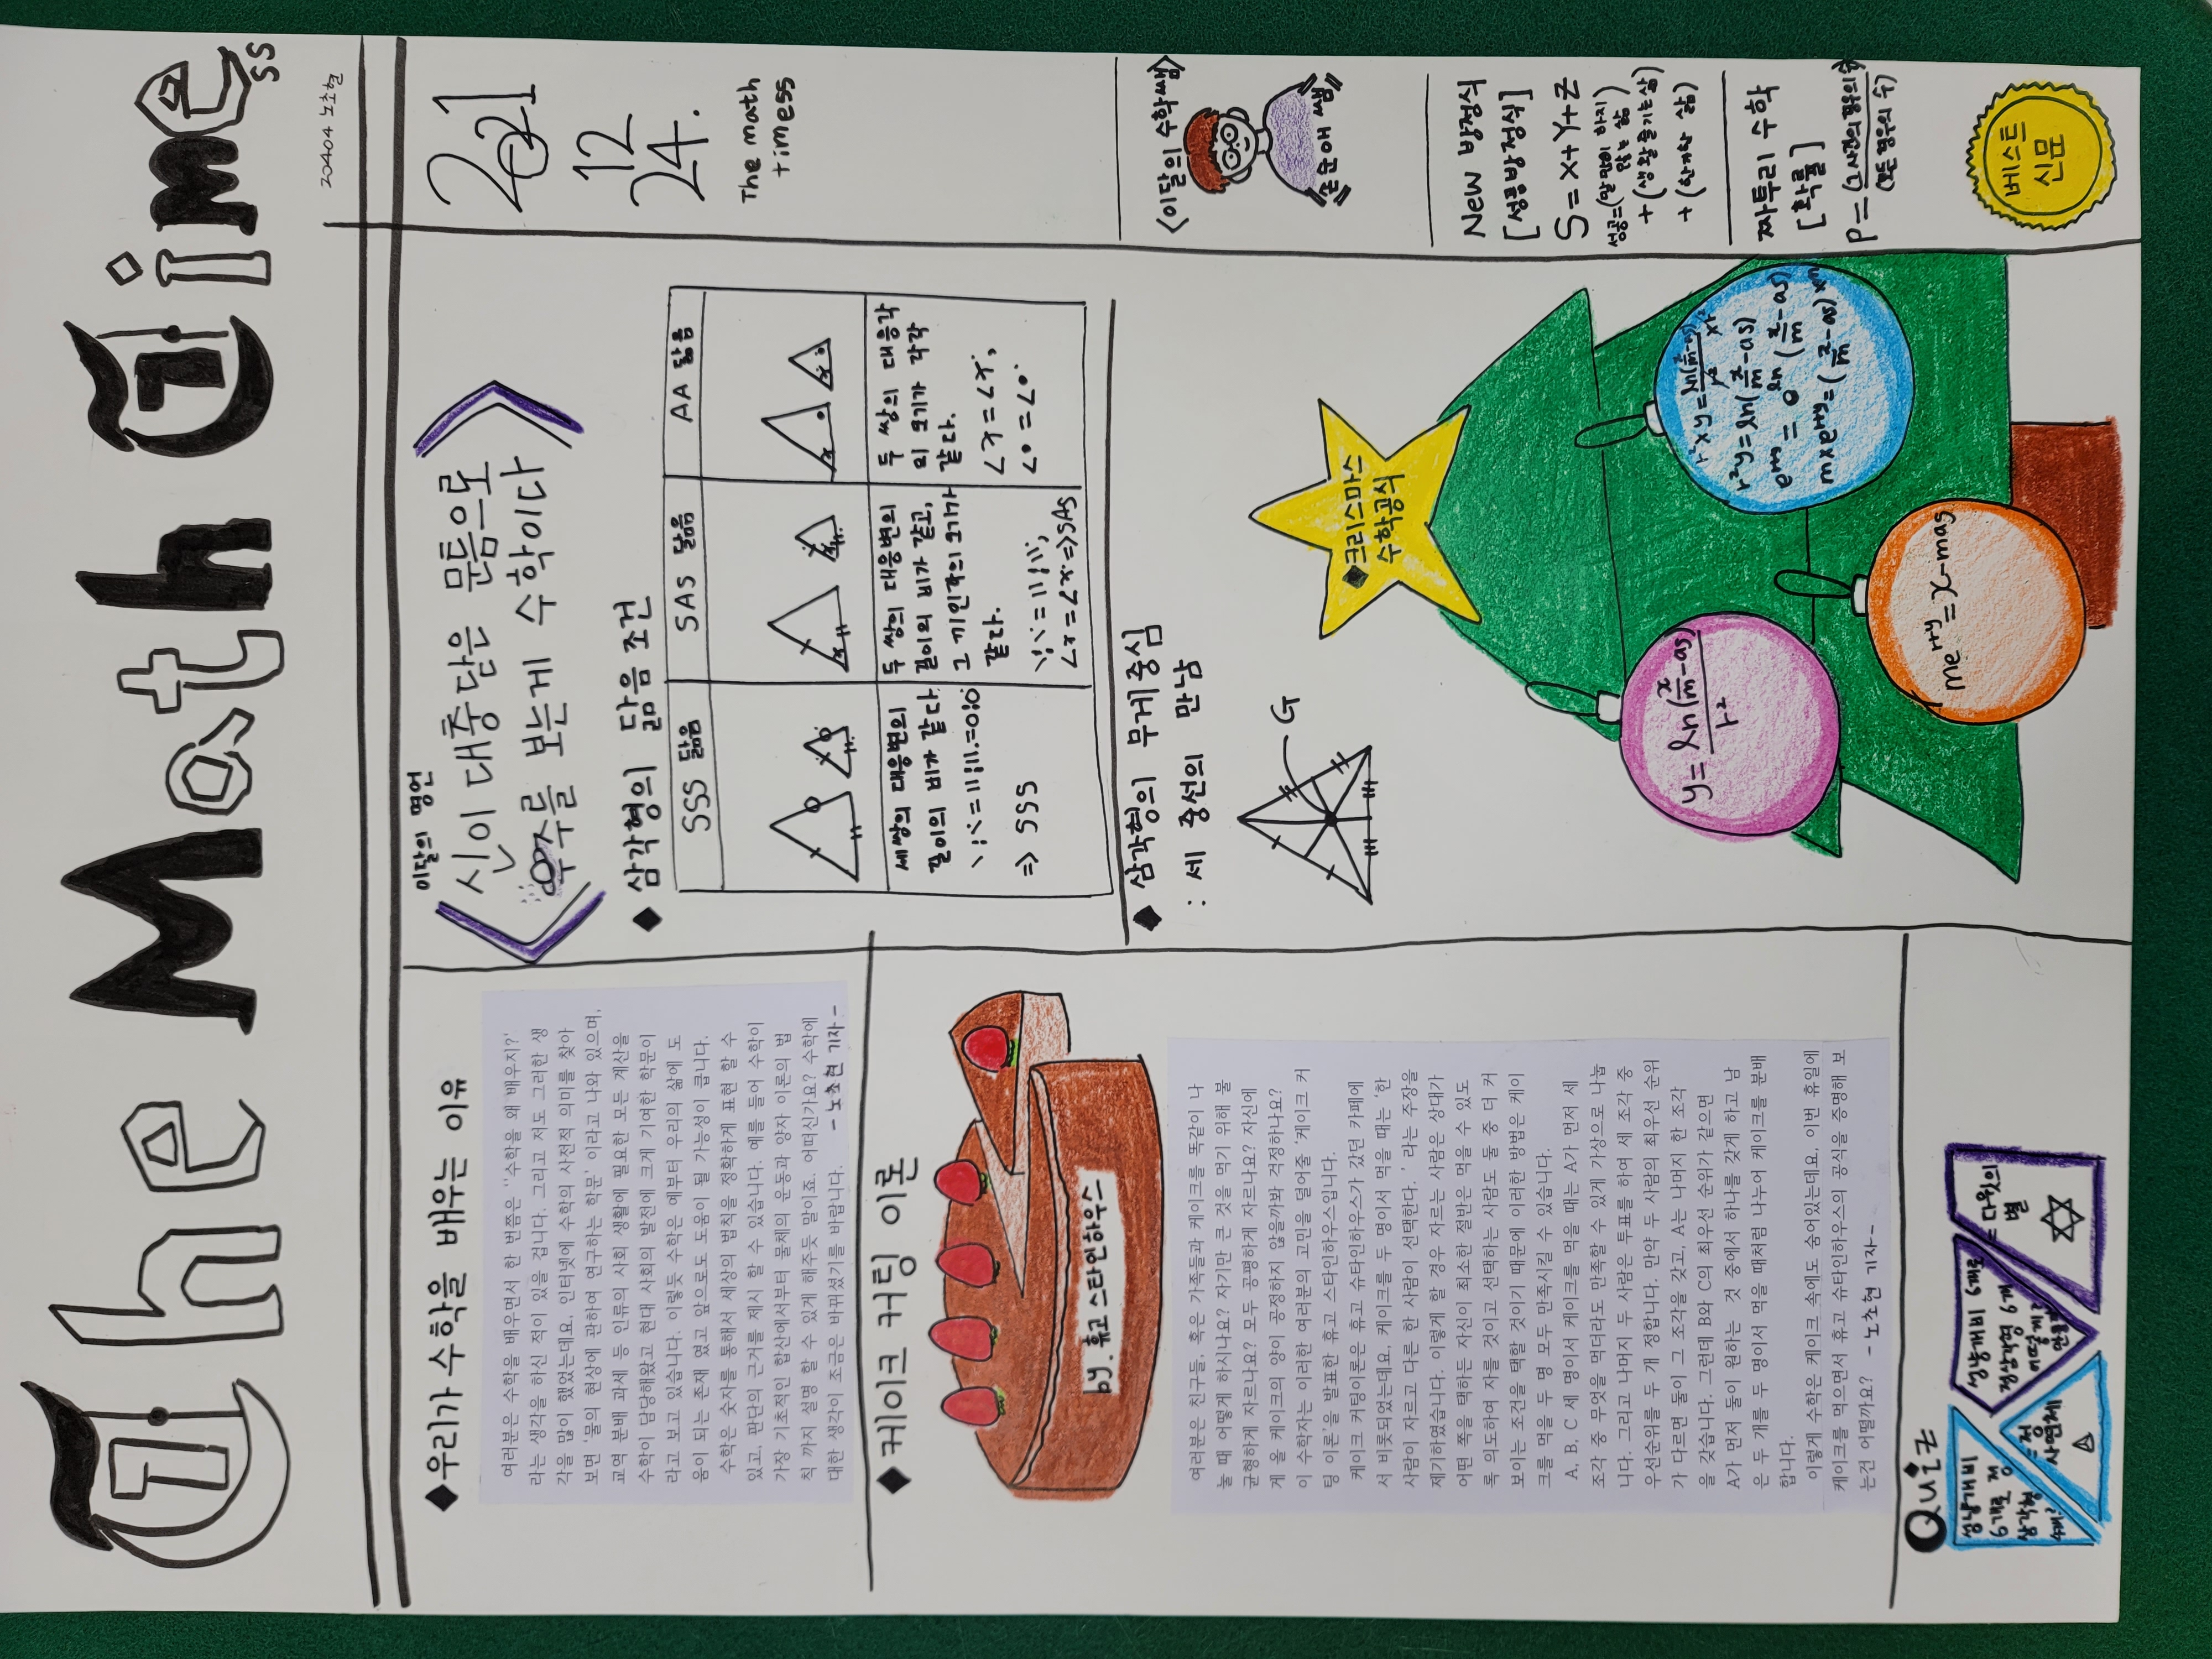 The Math Timess
20404 노초현
◆우리가 수학을 배우는 이유
여러분은 수학을 배우면서 한 번쯤은 "수학을 왜 배우지?"
라는 생각을 하신 적이 있을 겁니다. 그리고 저도 그러한 생
각을 많이 했었는데요. 인터넷에 수학의 사전적 의미를 찾아
보면 '물의 현상에 관하여 연구하는 학문' 이라고 나와 있으며,
교역 분배 과세 등 인류의 사회 생활에 필요한 모든 계산을
수학이 담당해왔고 현대 사회의 발전에 크게 기여한 학문이
라고 보고 있습니다. 이렇듯 수학은 예부터 우리의 삶에 도
움이 되는 존재 였고 앞으로도 도움이 될 가능성이 큽니다.
수학은 숫자를 통해서 세상의 법칙을 정확하게 표현 할 수
있고, 판단의 근거를 제시 할 수 있습니다. 예를 들어 수학이
가장 기초적인 합산에서부터 물체의 운동과 양자 이론의 법
칙 까지 설명 할 수 있게 해주듯 말이죠. 어떠신가요? 수학에
대한 생각이 조금은 바뀌셨기를 바랍니다. - 노초현 기자 -
◆케이크 커팅 이론
by. 휴고 스타인하우스
여러분은 친구들, 혹은 가족들과 케이크를 똑같이 나
눌 때 어떻게 하시나요? 자기만 큰 것을 먹기 위해 불
균형하게 자르나요? 모두 공평하게 자르나요? 자신에
게 올 케이크의 양이 공정하지 않을까봐 걱정하나요?
이 수학자는 이러한 여러분의 고민을 덜어줄 '케이크 커
팅 이론'을 발표한 휴고 스타인하우스입니다.
케이크 커팅이론은 휴고 슈타인하우스가 갔던 카페에
서 비롯되었는데요. 케이크를 두 명이서 먹을 때는 '한
사람이 자르고 다른 한 사람이 선택한다.' 라는 주장을
제기하였습니다. 이렇게 할 경우 자르는 사람은 상대가
어떤 쪽을 택하는 자신이 최소한 절반은 먹을 수 있도
록 의도하여 자를 것이고 선택하는 사람도 둘 중 더 커
보이는 조건을 택할 것이기 때문에 이러한 방법은 케이
크를 먹을 두 명 모두 만족시킬 수 있습니다.
A, B, C 세 명이서 케이크를 먹을 때는 A가 먼저 세
조각 중 무엇을 먹더라도 만족할 수 있게 가상으로 나눕
니다. 그리고 나머지 두 사람은 투표를 하여 세 조각 중
우선순위를 두 개 정합니다. 만약 두 사람의 최우선 순위
가 다르면 둘이 그 조각을 갖고, A는 나머지 한 조각
을 갖습니다. 그런데 B와 C의 최우선 순위가 같으면
A가 먼저 둘이 원하는 것 중에서 하나를 갖게 하고 남
은 두 개를 두 명이서 먹을 때처럼 나누어 케이크를 분배
합니다.
이렇게 수학은 케이크 속에도 숨어있는데요. 이번 휴일에
케이크를 먹으면서 휴고 슈타인하우스의 공식을 증명해 보
는건 어떨까요? - 노초현 기자 -
Quiz
성냥개비
6개로 정
삼각형
4개?
= 정
사면체
성냥개비 6개로
정삼각형 6개
어떻게
만들까?
= 다윗의
별
이달의 명언
신이 대충 담은 문틈으로
우주를 보는게 수학이다
◆ 삼각형의 닮음 조건
SSS 닮음
SAS 닮음
AA 닮음
세쌍의 대응변의
길이의 비가 같다.
=> SSS
두 쌍의 대응변의
길이의 비가 같고,
그 끼인각의 크기가
같다.
∠x=∠x=>SAS
두 쌍의 대응각
의 크기가 각각
같다.
∠x=∠x,
∠o=∠o.
◆ 삼각형의 무게중심
: 세 중선의 만남
G
◆크리스마스
수학공식
y=ln(x/m-as)/r²
r²xy=ln(x/m-as)/r² xr²
r²y=ln(x/m-as)
e^r²y=e^ln(x/m-as)
mxe^rry=(x/m-as)xm
me^rry=x-mas
2021
12
24.
The math
timess
<이달의 수학쌤>
손순애 쌤
New 방정식
[성공방정식]
S=X+Y+Z
성공=(말많이 하지
않는 삶)
+(생활 즐기는삶)
+(한가한 삶)
짜투리 수학
[확률]
P=(그 사건의 경우의 수)/(모든 경우의 수)
베스트
신문